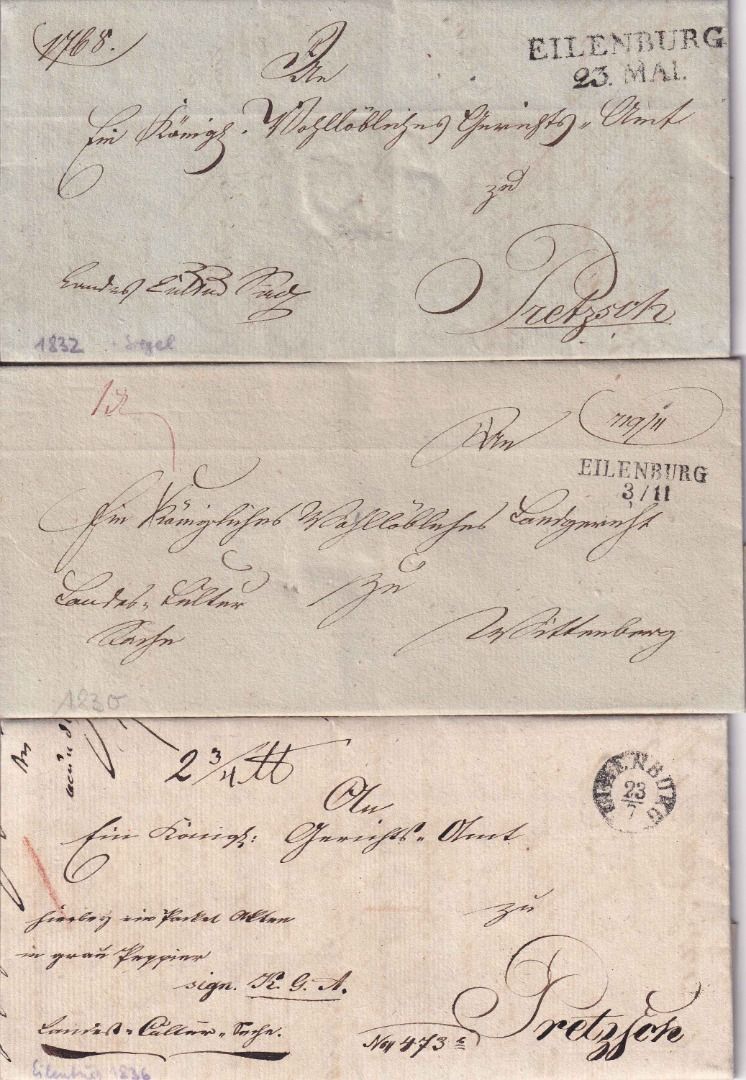 1768.
EILENBURG
23. MAI.
An
Ein Königl. Wohllöbliches Gerichts-Amt
zu
Landes Cultur Sach
Pretzsch.
1832 Siegel
An
719/11
EILENBURG
3/11
Ein Königliches Wohllöbliches Landgericht
Landes-Cultur zu
Sache Wittenberg
1830
2 3/4 ℔
EILENBURG
23/7
An
Ein Königl: Gerichts-Amt
hierbey ein Packet Akten
zu
in grau Pappier
sign. K. G. A.
Pretzsch
Landes-Cultur-Sache.
No 473
Eilenburg 1836